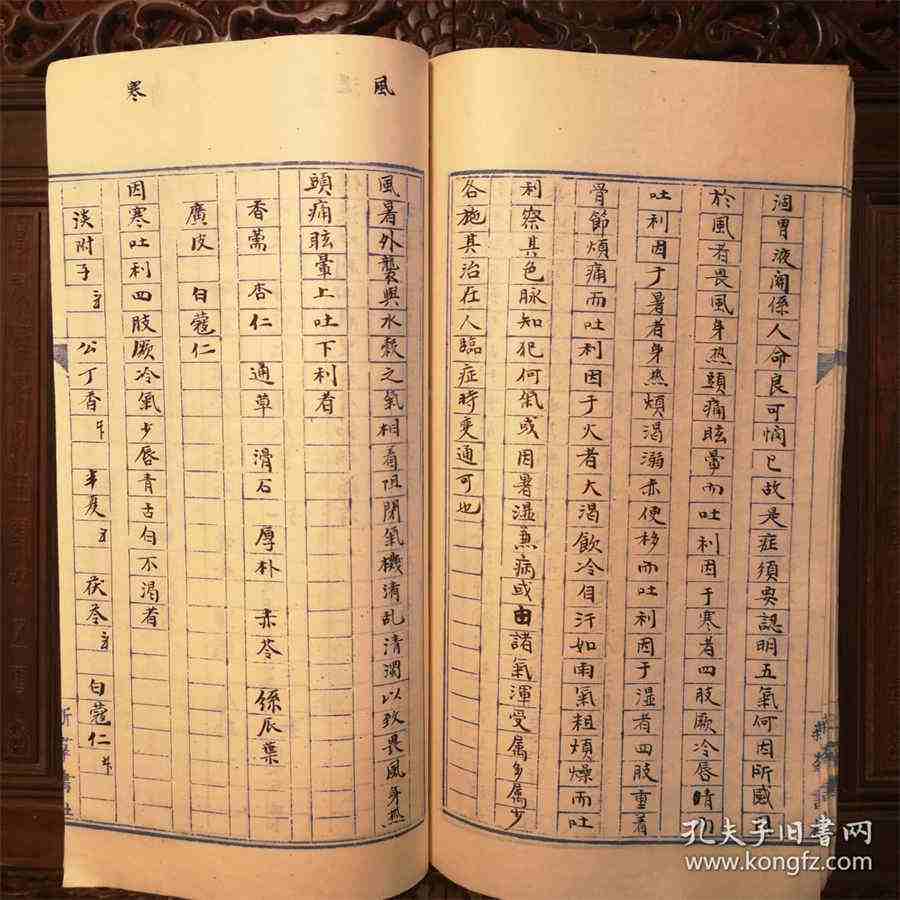 涸胃液關係人命良可憫已故是症須要認明五氣何因所感因
於風者畏風身热頭痛眩暈而吐利因于寒者四肢厥冷唇晴而
吐利因于暑者身热煩渴溺赤便移而吐利因于湿者四肢重着
骨節煩痛而吐利因于火者大渴飲冷自汗如雨氣粗煩燥而吐
利察其色脉知犯何氣或因暑湿兼病或由諸氣渾受属多属少
各施其治在人臨症時变通可也
風
風暑外襲與水穀之氣相着阻閉氣機清乱清濁以致畏風身热
頭痛眩暈上吐下利者
香薷 杏仁 通草 滑石 厚朴 赤苓 絲瓜葉
廣皮 白蔻仁
寒
因寒吐利四肢厥冷氣少唇青舌白不渴者
淡附子 公丁香 半夏 茯苓 白蔻仁
孔夫子旧書网
www.kongfz.com